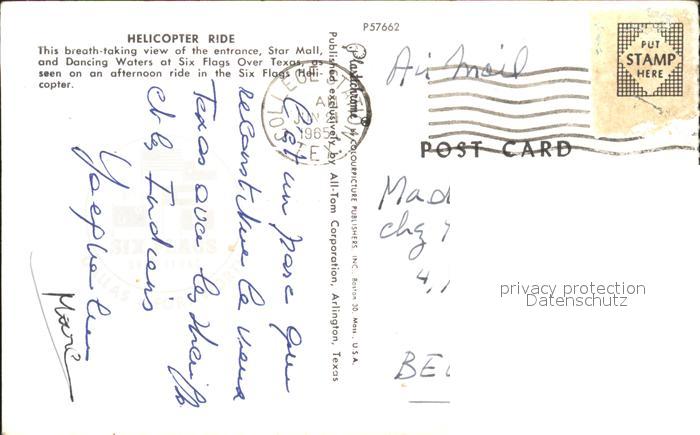 P57662
HELICOPTER RIDE
This breath-taking view of the entrance, Star Mall,
and Dancing Waters at Six Flags Over Texas, as
seen on an afternoon ride in the Six Flags Heli-
copter.
Plastichrome® by COLOURPICTURE PUBLISHERS, INC., Boston 30, Mass., U.S.A.
Published exclusively by All-Tom Corporation, Arlington, Texas
C'est un parc qui
reconstitue le vieux
Texas avec les Sheriffs
et les Indiens
Air Mail
PUT
STAMP
HERE
1965
POST CARD
Mad
chez
4,
BEL
privacy protection
Datenschutz